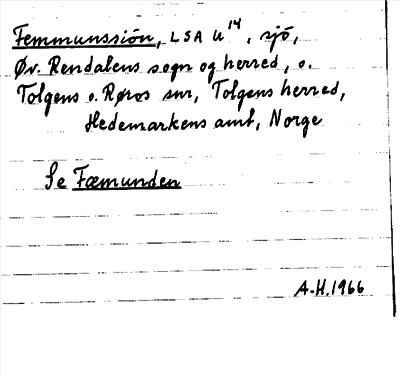 Femmunssión, LSA U14, sjö,
Øv. Rendalens sogn og herred, o.
Tolgens o. Røros snr, Tolgens herred,
Hedemarkens amt, Norge
Se Fæmunden
A.H. 1966